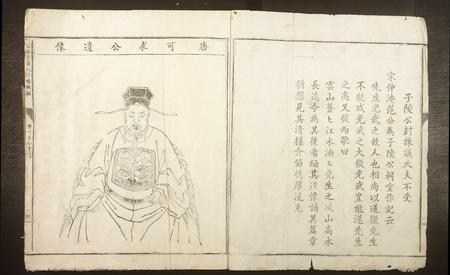 子陵公封諫議大夫不受
宋仲淹范公為子陵公祠堂作記云
先生光武之故人也相尚以道微先生
不能成光武之大微光武豈能遂先生
之高又從而歌曰
雲山蒼〻江水泱〻先生之風山高水
長迄今為其後者緬其遺像誦其篇章
猶想見其清操介節德厚流光
唐可求公遺像